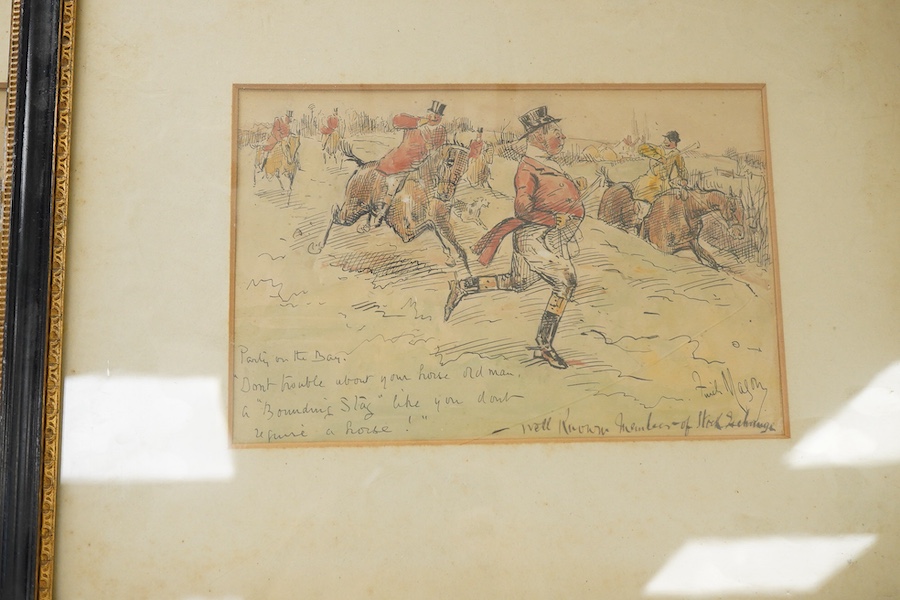 Party on the Bay.
"Dont trouble about your horse old man.
a "Bounding Stag" like you dont
require a horse!"
Finch Mason
well Known Members of Stock Exchange